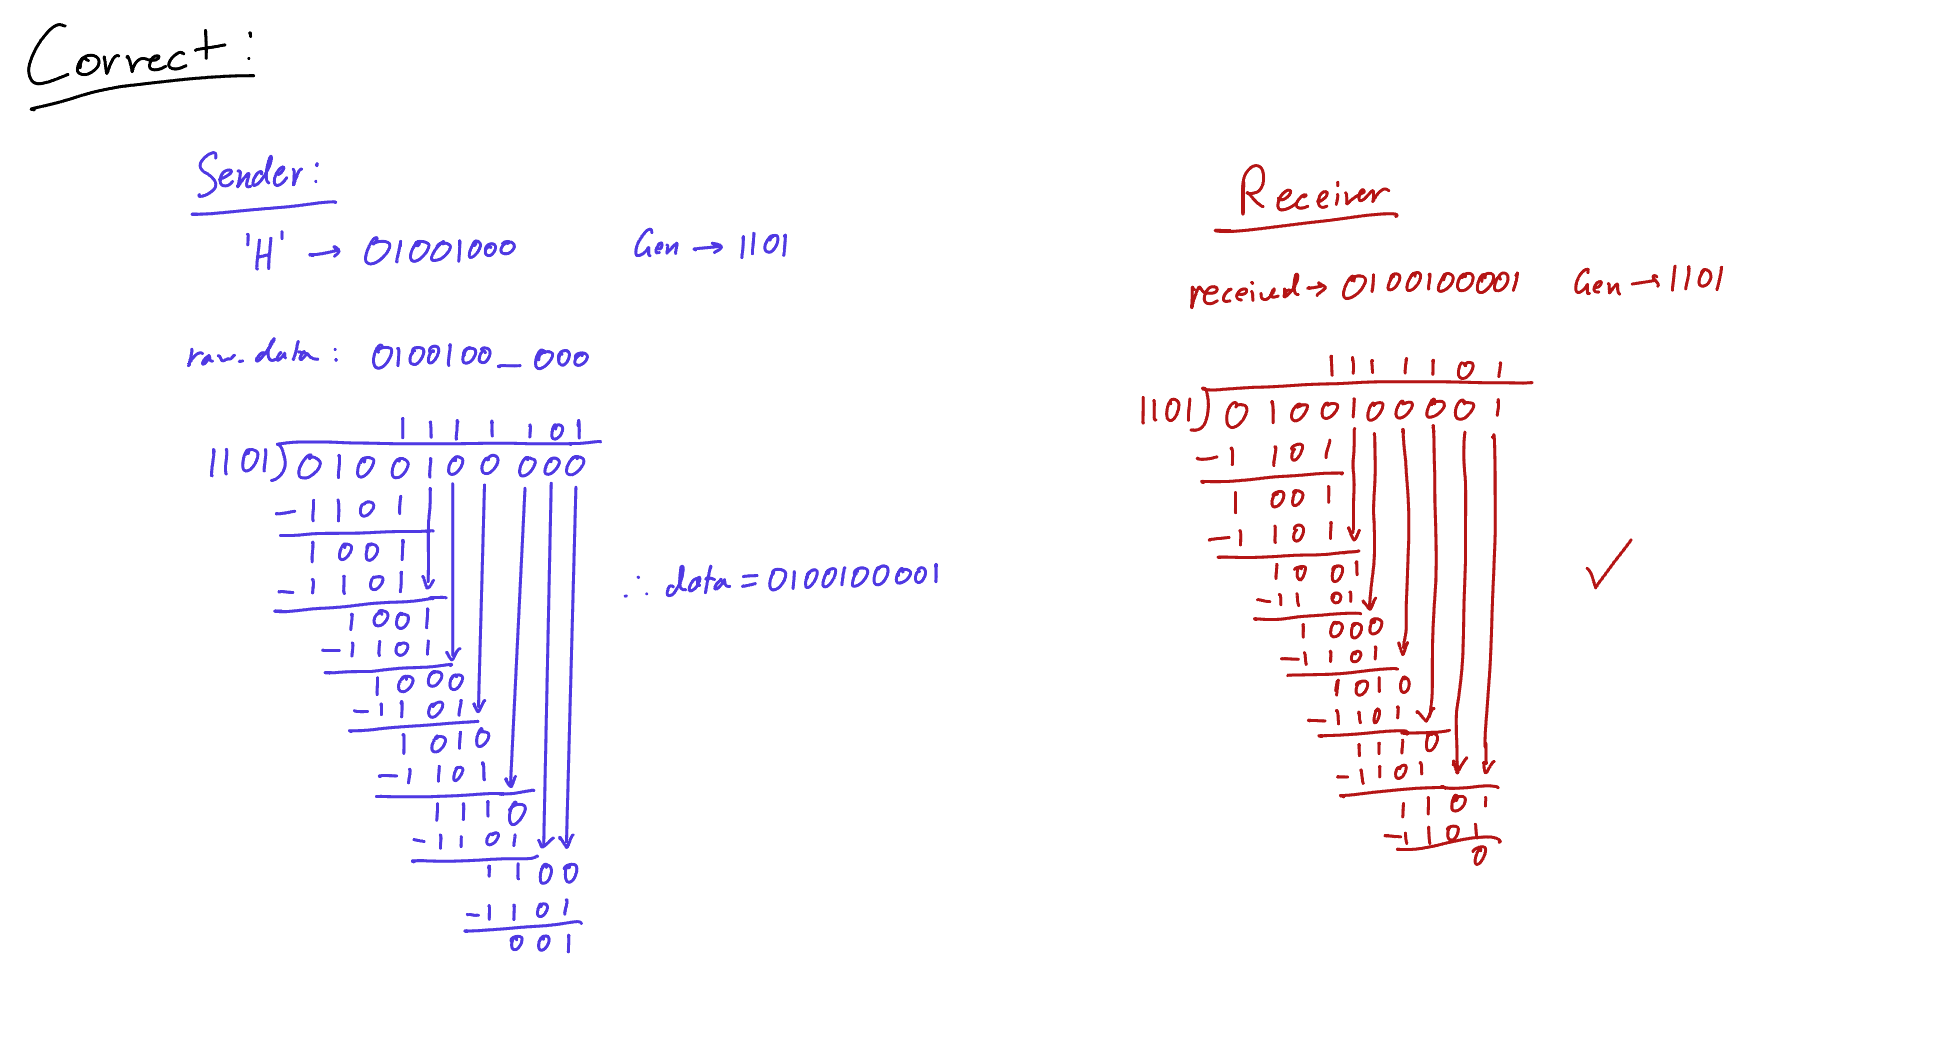 Correct:
Sender:
'H' → 01001000 Gen → 1101
raw-data: 0100100_000
1111101
1101)0100100000
-1101
1001
-1101
1001
-1101
1000
-1101
1010
-1101
1110
-1101
1100
-1101
001
∴ data = 0100100001
Receiver
received → 0100100001 Gen → 1101
1111101
1101)0100100001
-1101
1001
-1101
1001
-1101
1000
-1101
1010
-1101
1110
-1101
1101
-1101
0
✓